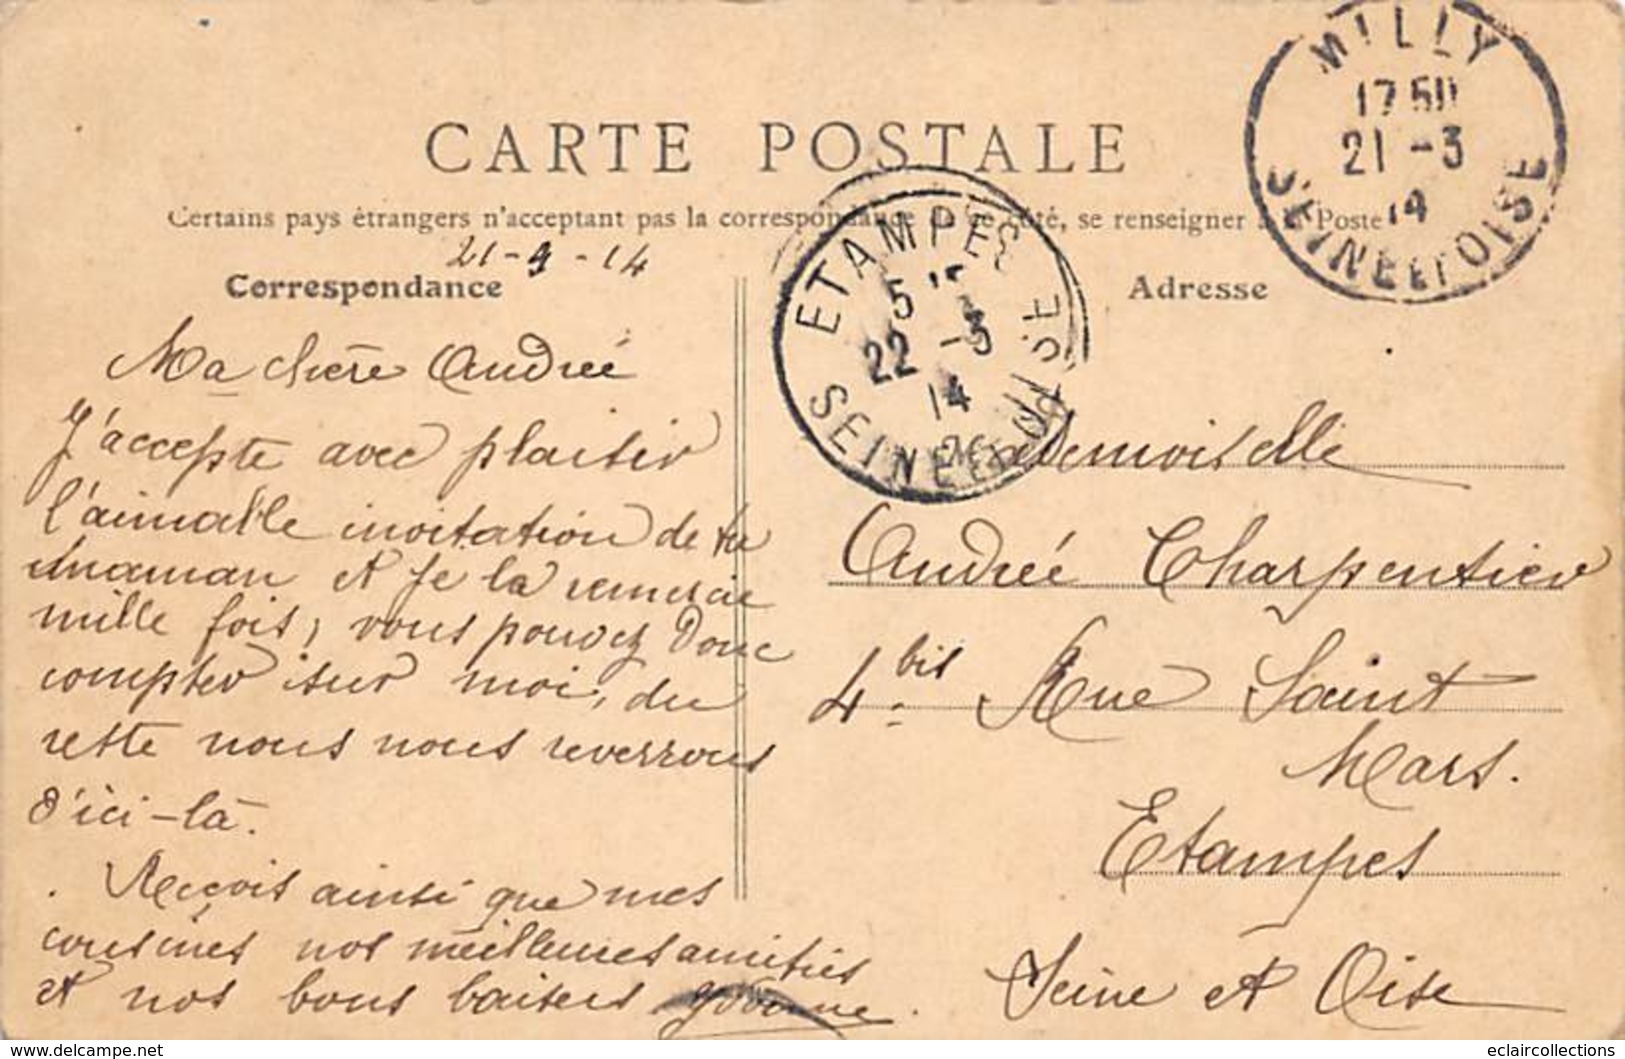 MILLY
17 50
21 -3
14
SEINE ET OISE
CARTE POSTALE
Certains pays étrangers n'acceptant pas la correspondance de ce côté, se renseigner à la Poste
ETAMPES
5
22 -3
14
SEINE ET OISE
21-3-14
Correspondance
Adresse
Ma chère Andrée
J'accepte avec plaisir
l'aimable invitation de ta
maman et je la remercie
mille fois, vous pouvez donc
compter sur moi, du
reste nous nous reverrons
d'ici-là.
Reçois ainsi que mes
cousines nos meilleures amitiés
et nos bons baisers Yvonne.
Mademoiselle
Andrée Charpentier
4 bis Rue Saint
Mars.
Etampes
Seine et Oise
www.delcampe.net
eclaircollections